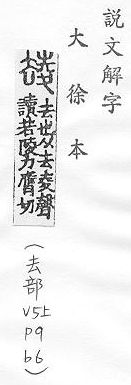 説文解字
大徐本
去也从去夌聲
讀若陵力膺切
(去部V5上p9b6)